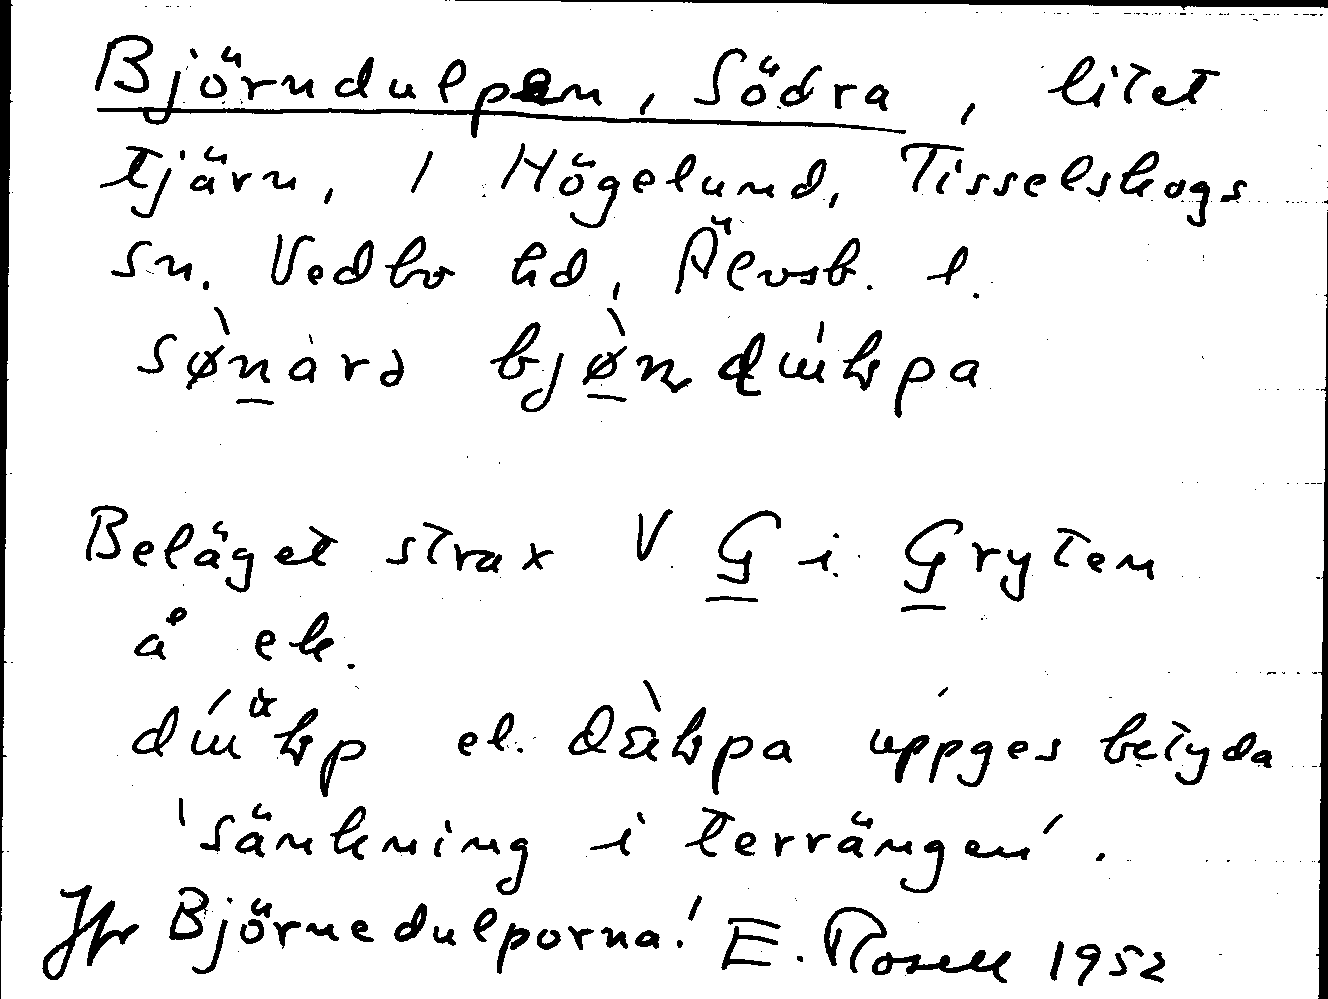 Björndulpen, Södra, litet
tjärn, i Högelund, Tisselskogs
sn. Vedbo hd, Älvsb. l.
Beläget strax V G i Gryten
å ek.
el. uppges betyda
'sänkning i terrängen'.
Jfr Björnedulporna! E. Rosell 1952